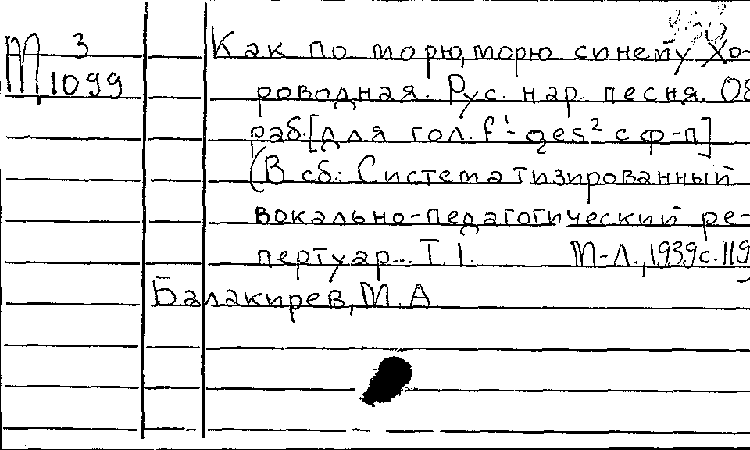 М 3
1099
Как по морю, морю синему Хо-
роводная. Рус. нар. песня. Об
раб. [для гол. f¹- ges² с ф-п]
(В сб.: Систематизированный
вокально-педагогический ре-
пертуар... Т. I. М-Л., 1939 с. 119
Балакирев, М. А